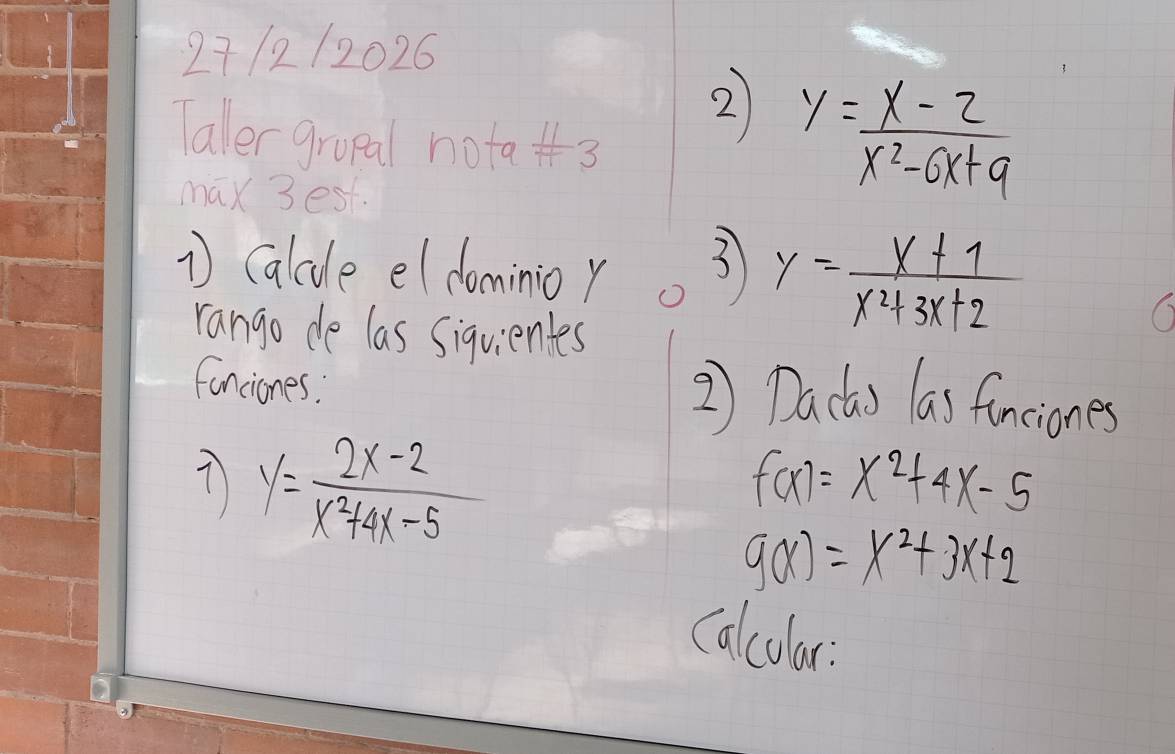 27/2/2026
Taller grupal nota #3
máx 3 est.
1) Calcule el dominio y
rango de las siguientes
funciones:
1) y = (2x - 2)/(x² + 4x - 5)
2) y = (x - 2)/(x² - 6x + 9)
3) y = (x + 1)/(x² + 3x + 2)
2) Dadas las funciones
f(x) = x² + 4x - 5
g(x) = x² + 3x + 2
Calcular: